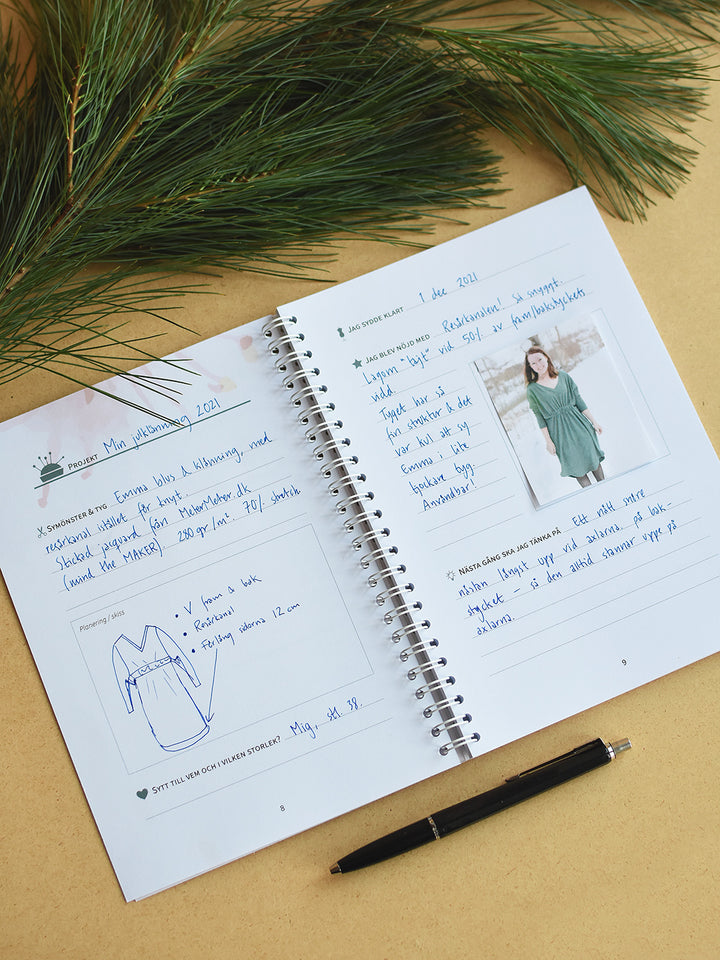 PROJEKT Min julklänning 2021
SYMÖNSTER & TYG Emma blus & klänning, med
resårkanal istället för knyt.
Stickad jacquard från MeterMeter.dk
(mind the MAKER), 280 gr/m². 70% stretch
Planering / skiss
• V fram & bak
• Resårkanal
• Förläng sidorna 12 cm
SYTT TILL VEM OCH I VILKEN STORLEK? Mig, stl. 38.
8
JAG SYDDE KLART 1 dec 2021
JAG BLEV NÖJD MED Resårkanalen! Så snyggt.
Lagom "tajt" vid 50% av fram/bakstyckets
vidd.
Tyget har så
fin struktur & det
var kul att sy
Emma i lite
tjockare tyg.
Användbar!
NÄSTA GÅNG SKA JAG TÄNKA PÅ Ett nått snäre
nästan längst upp vid axlarna, på bak-
stycket – så den alltid stannar uppe på
axlarna.
9